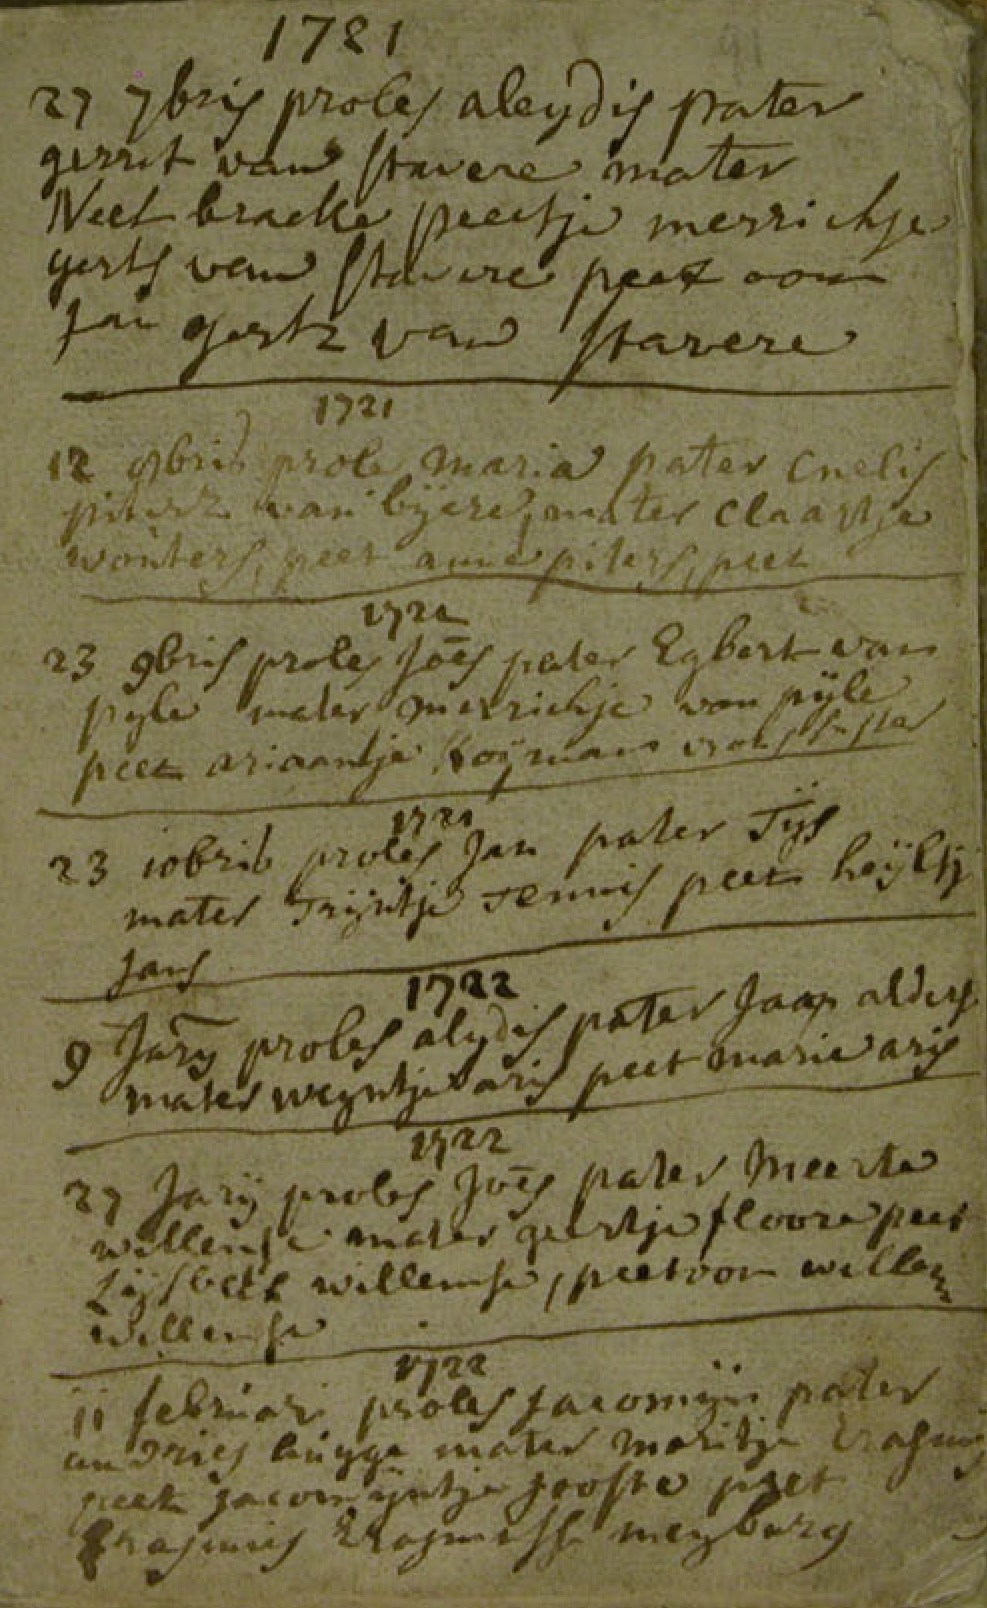 1721
27 7bris proles aleydis pater
gerrit van stavere mater
Neel bracke peetje merrichje
gerts van stavere peet oom
Jan gertz van stavere
1721
12 9bris prole maria pater Cnelis
piterz van bijere, mater claartje
wouters, peet anne piters, peet
1721
23 9bris proles Joēs pater Egbert van
pyle mater merrichje van pijle
peet ariaantje
1721
23 10bris proles Jan pater Tijs
mater Trijntje Tennis peet heijltj
Jans
1722
9 Jary proles alydis pater Jaap alders
mater weyntje aris peet marie aris
1722
27 Jarij proles Joēs pater Meerte
willemse mater geertje floore peet
Lijsbeth willemse, peetoom willem
willemse
1722
11 februari proles Jacomijn pater
andries bugge mater maritje Erasmus
peet Jacomijntje Jooste peet
Erasmus Erasmusse meyburg